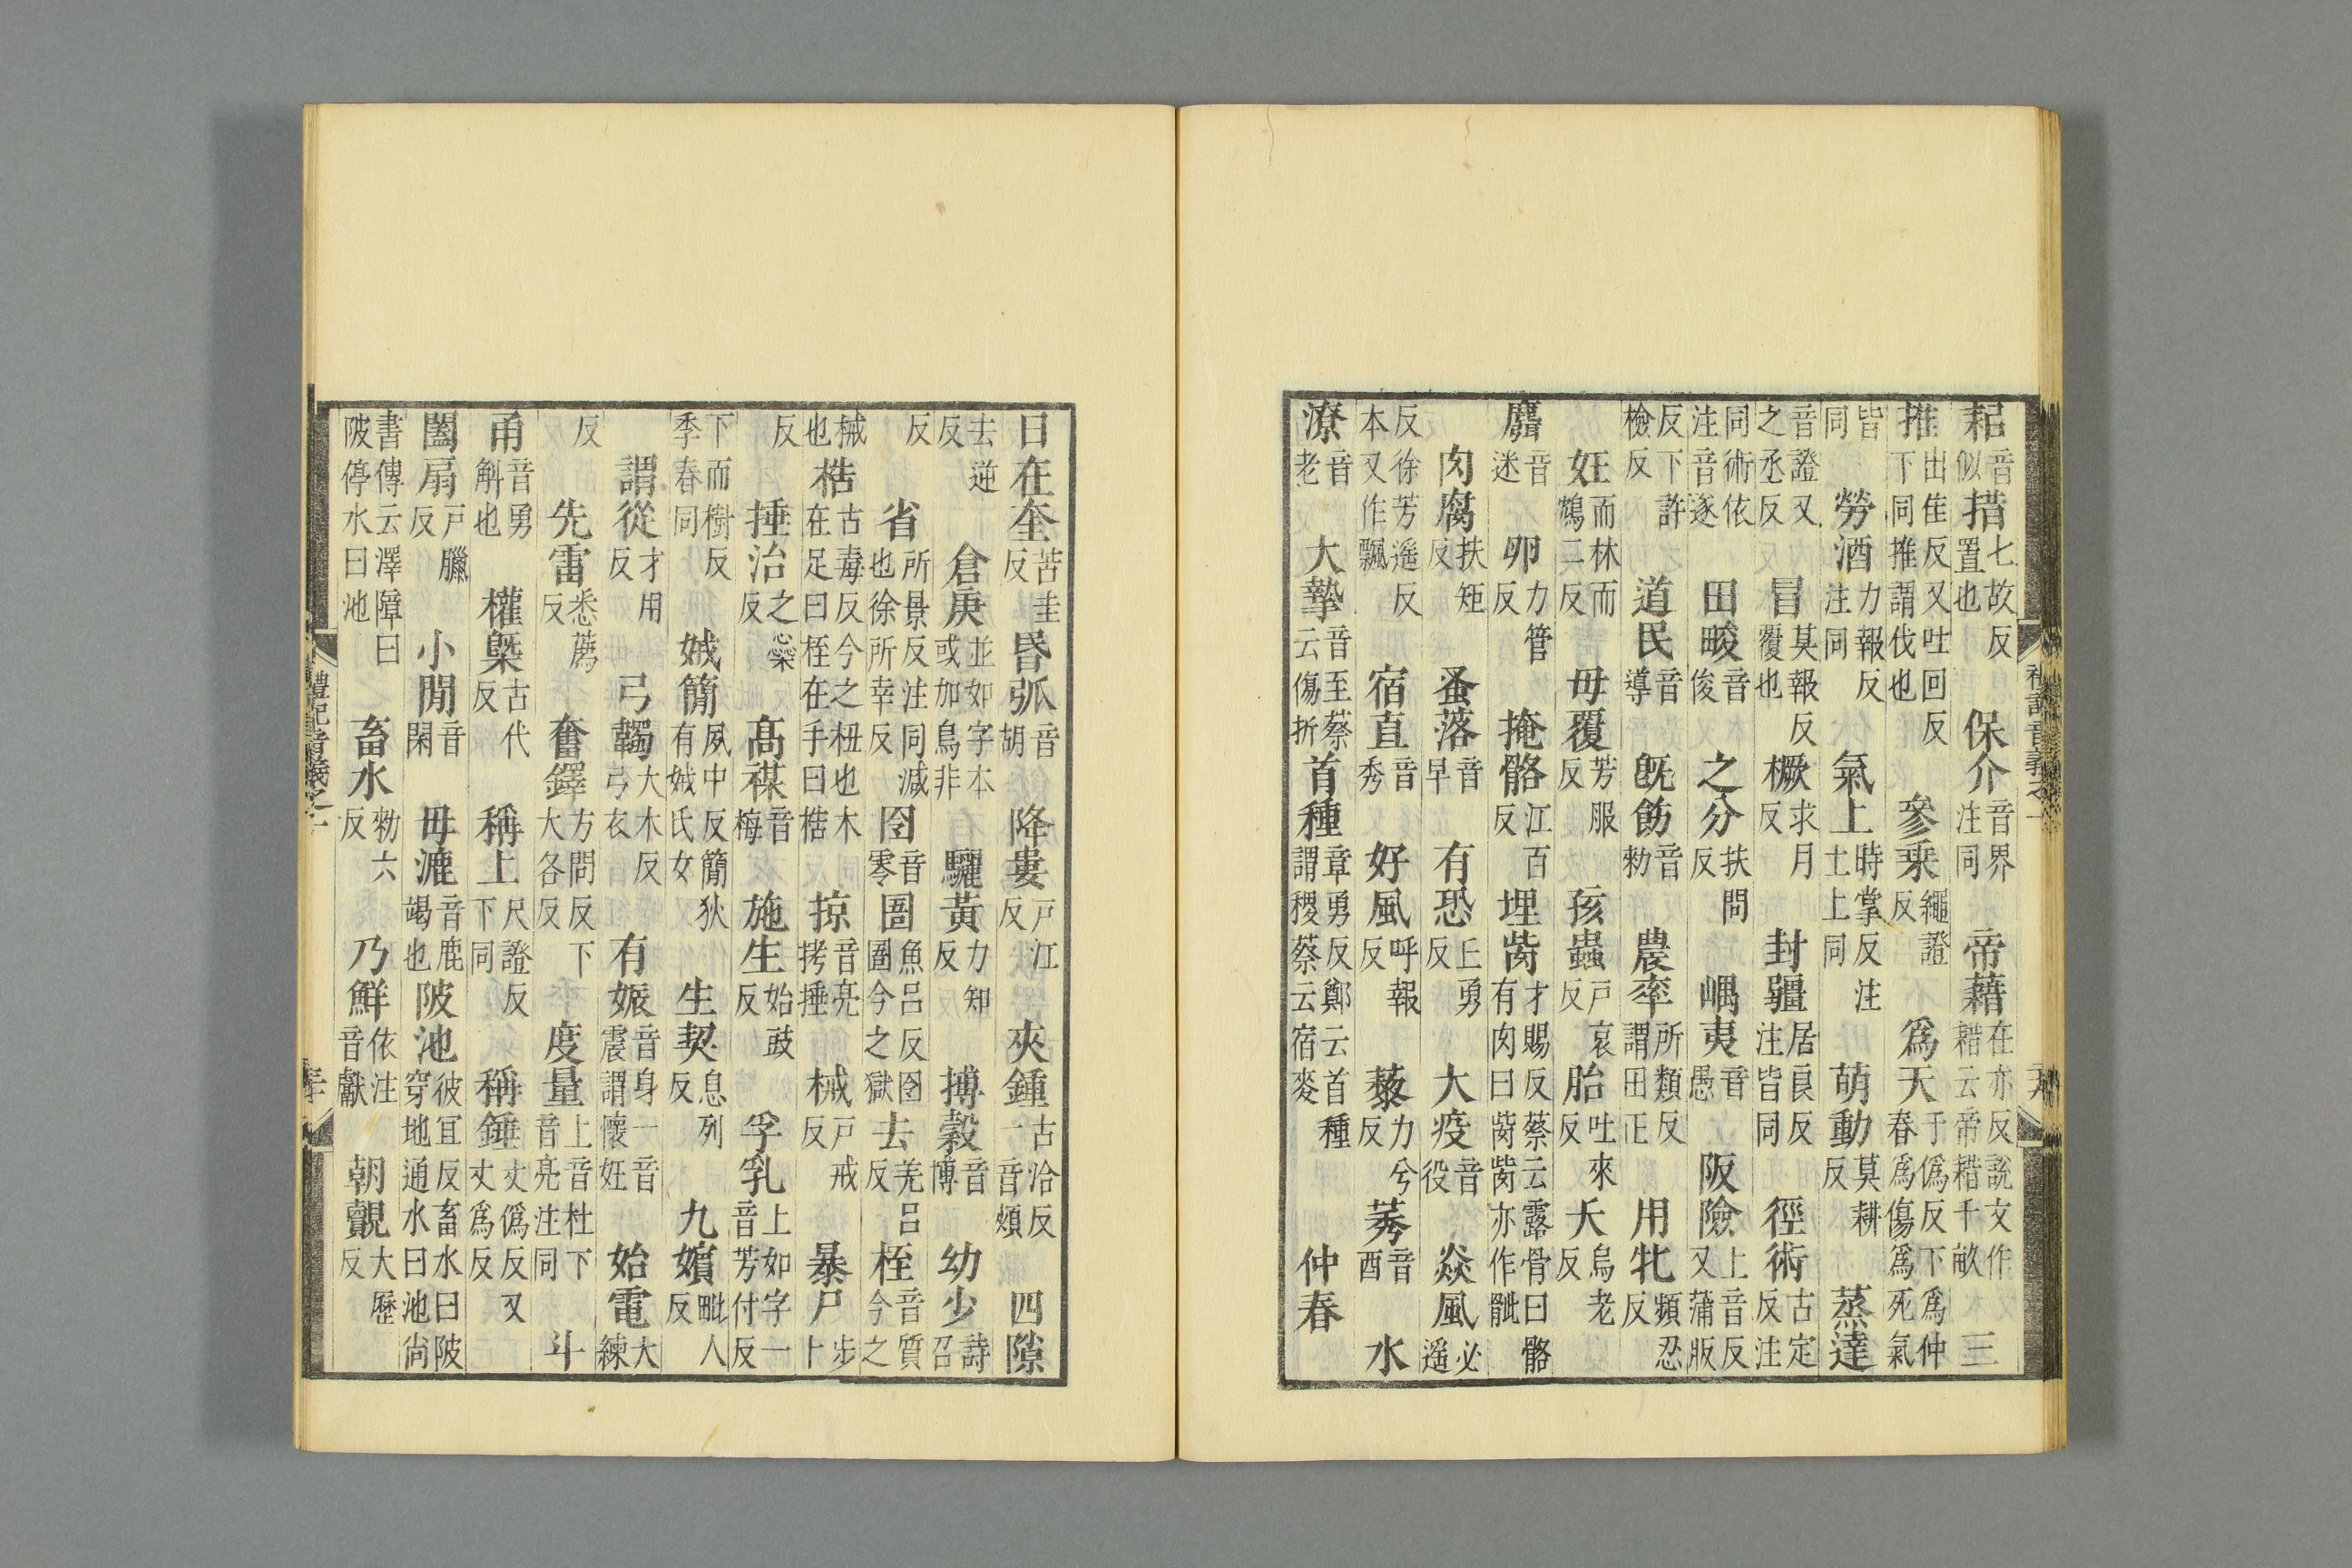 耜音似措七故反置也保介音界注同帝藉在亦反說文作耤云帝耤千畝三
推出隹反又吐回反下同推謂伐也參乘繩證反爲天于僞反下爲仲春爲傷爲死氣
皆同勞酒力報反注同氣上時掌反注土上同萌動莫耕反蒸達
音證又之丞反冒莫報反覆也橛求月反封疆居良反注皆同徑術古定反注
同術依注音遂田畯音俊之分扶問反嵎夷音愚阪險上音反又蒲版
反下許檢反道民音導旣飭音勑農率所類反謂田正用牝頻忍反
妊而林而鴆二反毋覆芳服反孩蟲戶哀反胎吐來反夭烏老反
麛音迷卵力管反掩骼江百反埋胔才賜反蔡云露骨曰骼有肉曰胔胔亦作骴
肉腐扶矩反蚤落音早有恐丘勇反大疫音役猋風必遥
反徐芳遥反本又作飄宿直音秀好風呼報反藜力兮反莠音酉水
潦音老大摯音至蔡云傷折首種章勇反鄭云首種謂稷蔡云宿麥仲春
日在奎苦圭反昏弧音胡降婁戶江反夾鍾古洽反一音頰四隙
去逆反倉庚並如字本或加鳥非驪黃力知反搏穀音博幼少詩召
反省所景反注同減也徐所幸反囹音零圄魚呂反囹圄今之獄去羌呂反桎音質今之
械也梏古毒反今之杻也木在足曰桎在手曰梏掠音亮拷捶械戶戒反暴尸步卜
反捶治之蘂反高禖音梅施生始豉反孚乳上如字一音芳付反
下而樹反季春同娀簡夙中反簡狄有娀氏女生契息列反九嬪毗人反
謂從才用反弓韣大木反弓衣有娠音身一音震謂懷妊始電大練
反先雷悉薦反奮鐸方問反下大各反度量上音杜下音亮注同斗
甬音勇斛也權槩古代反稱上尺證反下同稱錘丈僞反又丈爲反
闔扇戶臘反小閒音閑毋漉音鹿竭也陂池彼冝反畜水曰陂穿地通水曰池尚
書傳云澤障曰陂停水曰池畜水勑六反乃鮮依注音獻朝覿大歷反
禮記音義之一